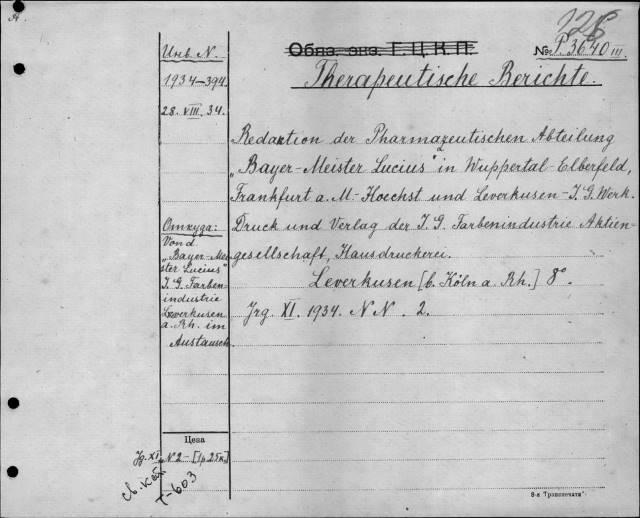 126
Инв. N.
Обяз. экз. Г.Ц.К.П.
№ P. 3640 III.
1934-394
Therapeutische Berichte.
28. VIII. 34.
Redaktion der Pharmazeutischen Abteilung
„Bayer-Meister Lucius" in Wuppertal-Elberfeld,
Frankfurt a. M.-Hoechst und Leverkusen-I. G. Werk.
Druck und Verlag der I. G. Farbenindustrie Aktien-
gesellschaft, Hausdruckerei.
Leverkusen [b. Köln a. Rh.] 8°.
Jrg. XI. 1934. NN. 2.
Откуда:
Von d.
„Bayer-Mei-
ster Lucius"
I. G. Farben-
industrie
Leverkusen
a. Rh. im
Austausch.
Цена
Jg. XI „N2- [1p.25к.]
св. каб.
T-603
8-я Транспечати"